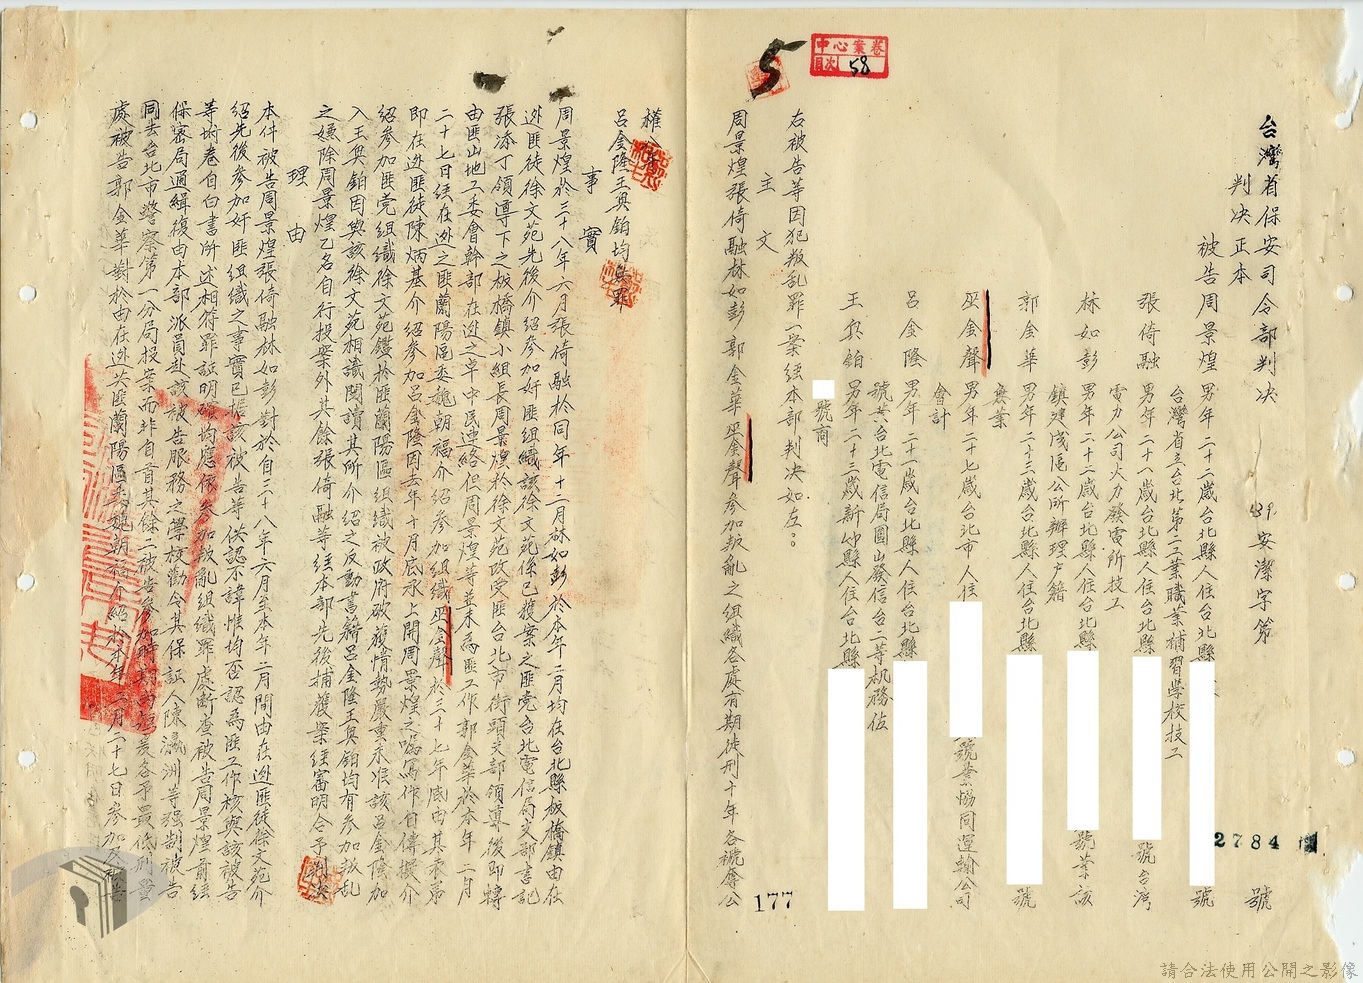 中心案卷
目次 58
台灣省保安司令部判決 39 安潔字第 2784 號
判決正本
被告周景煌 男年二十二歲台北縣人住台北縣 號
台灣省立台北第二工業職業補習學校技工
張倚融 男年二十八歲台北縣人住台北縣 號台灣
電力公司火力發電所技工
林如彭 男年二十二歲台北縣人住台北縣 號業該
鎮建成區公所辦理戶籍
郭金華 男年二十三歲台北縣人住台北縣 號
無業
巫金聲 男年二十七歲台北市人住 號業協同運輸公司
會計
呂金隆 男年二十一歲台北縣人住台北縣
號業台北電信局圓山發信台二等机務佐
王奐鉑 男年二十三歲新竹縣人住台北縣
號商
右被告等因犯叛乱罪一案経本部判决如左：
主文
周景煌張倚融林如彭郭金華巫金聲參加叛亂之組織各處有期徒刑十年各褫奪公
177
權
呂金隆王奐鉑均無罪
事實
周景煌於三十八年六月張倚融於同年十二月林如彭於本年二月均在台北縣板橋鎮由在
逃匪徒徐文苑先後介紹參加奸匪組織該徐文苑係已獲案之匪党台北電信局支部書記
張添丁領導下之板橋鎮小組長周景煌於徐文苑改受匪台北市街頭支部領導後即轉
由匪山地工委會幹部在逃之卓中民連絡但周景煌等並未為匪工作郭金華於本年二月
二十七日経在逃之匪蘭陽區委魏朝福介紹參加組織巫金聲於三十七年底由其表弟
即在逃匪徒陳炳基介紹參加呂金隆因去年十月底承上開周景煌之囑寫作自傳擬介
紹參加匪党組織徐文苑鑑於匪蘭陽區組織被政府破獲情勢嚴重未准該呂金隆加
入王奐鉑因與該徐文苑相識閱讀其所介紹之反動書籍呂金隆王奐鉑均有參加叛乱
之嫌除周景煌乙名自行投案外其餘張倚融等経本部先後捕獲案経審明合予判决
理由
本件被告周景煌張倚融林如彭對於自三十八年六月至本年二月間由在逃匪徒徐文苑介
紹先後參加奸匪組織之事實已據該被告等供認不諱惟均否認為匪工作核與該被告
等坿卷自白書所述相符罪証明確均應依參加叛亂組織罪處斷查被告周景煌前経
保密局通緝復由本部派員赴該被告服務之學校勸令其保証人陳瀛洲等强制被告
同去台北市警察第一分局投案而非自首其餘二被告參加時期尚短爰各予最低刑量
處被告郭金華對於由在逃共匪蘭陽區委魏朝福介紹於本年二月二十七日參加及被告
請合法使用公開之影像